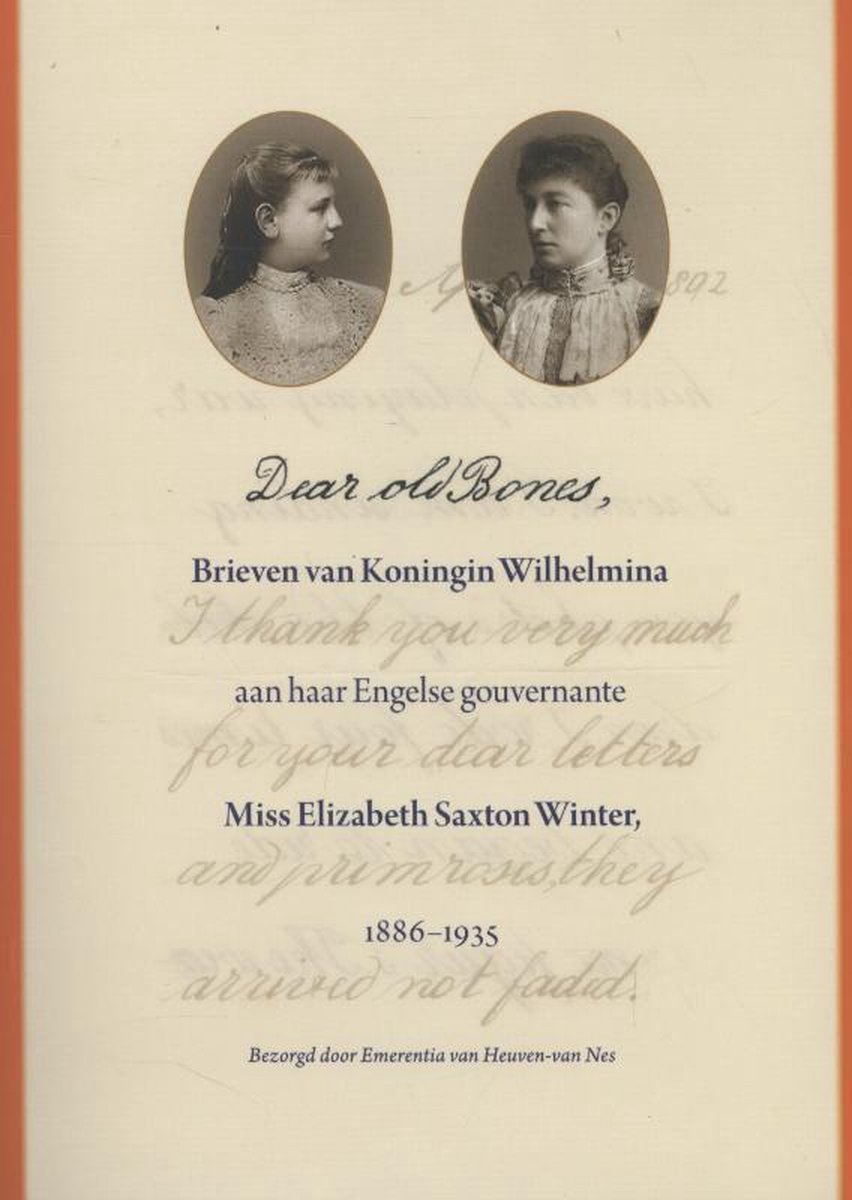 892
Dear old Bones,
Brieven van Koningin Wilhelmina
I thank you very much
aan haar Engelse gouvernante
for your dear letters
Miss Elizabeth Saxton Winter,
and primroses, they
1886–1935
arrived not faded.
Bezorgd door Emerentia van Heuven-van Nes